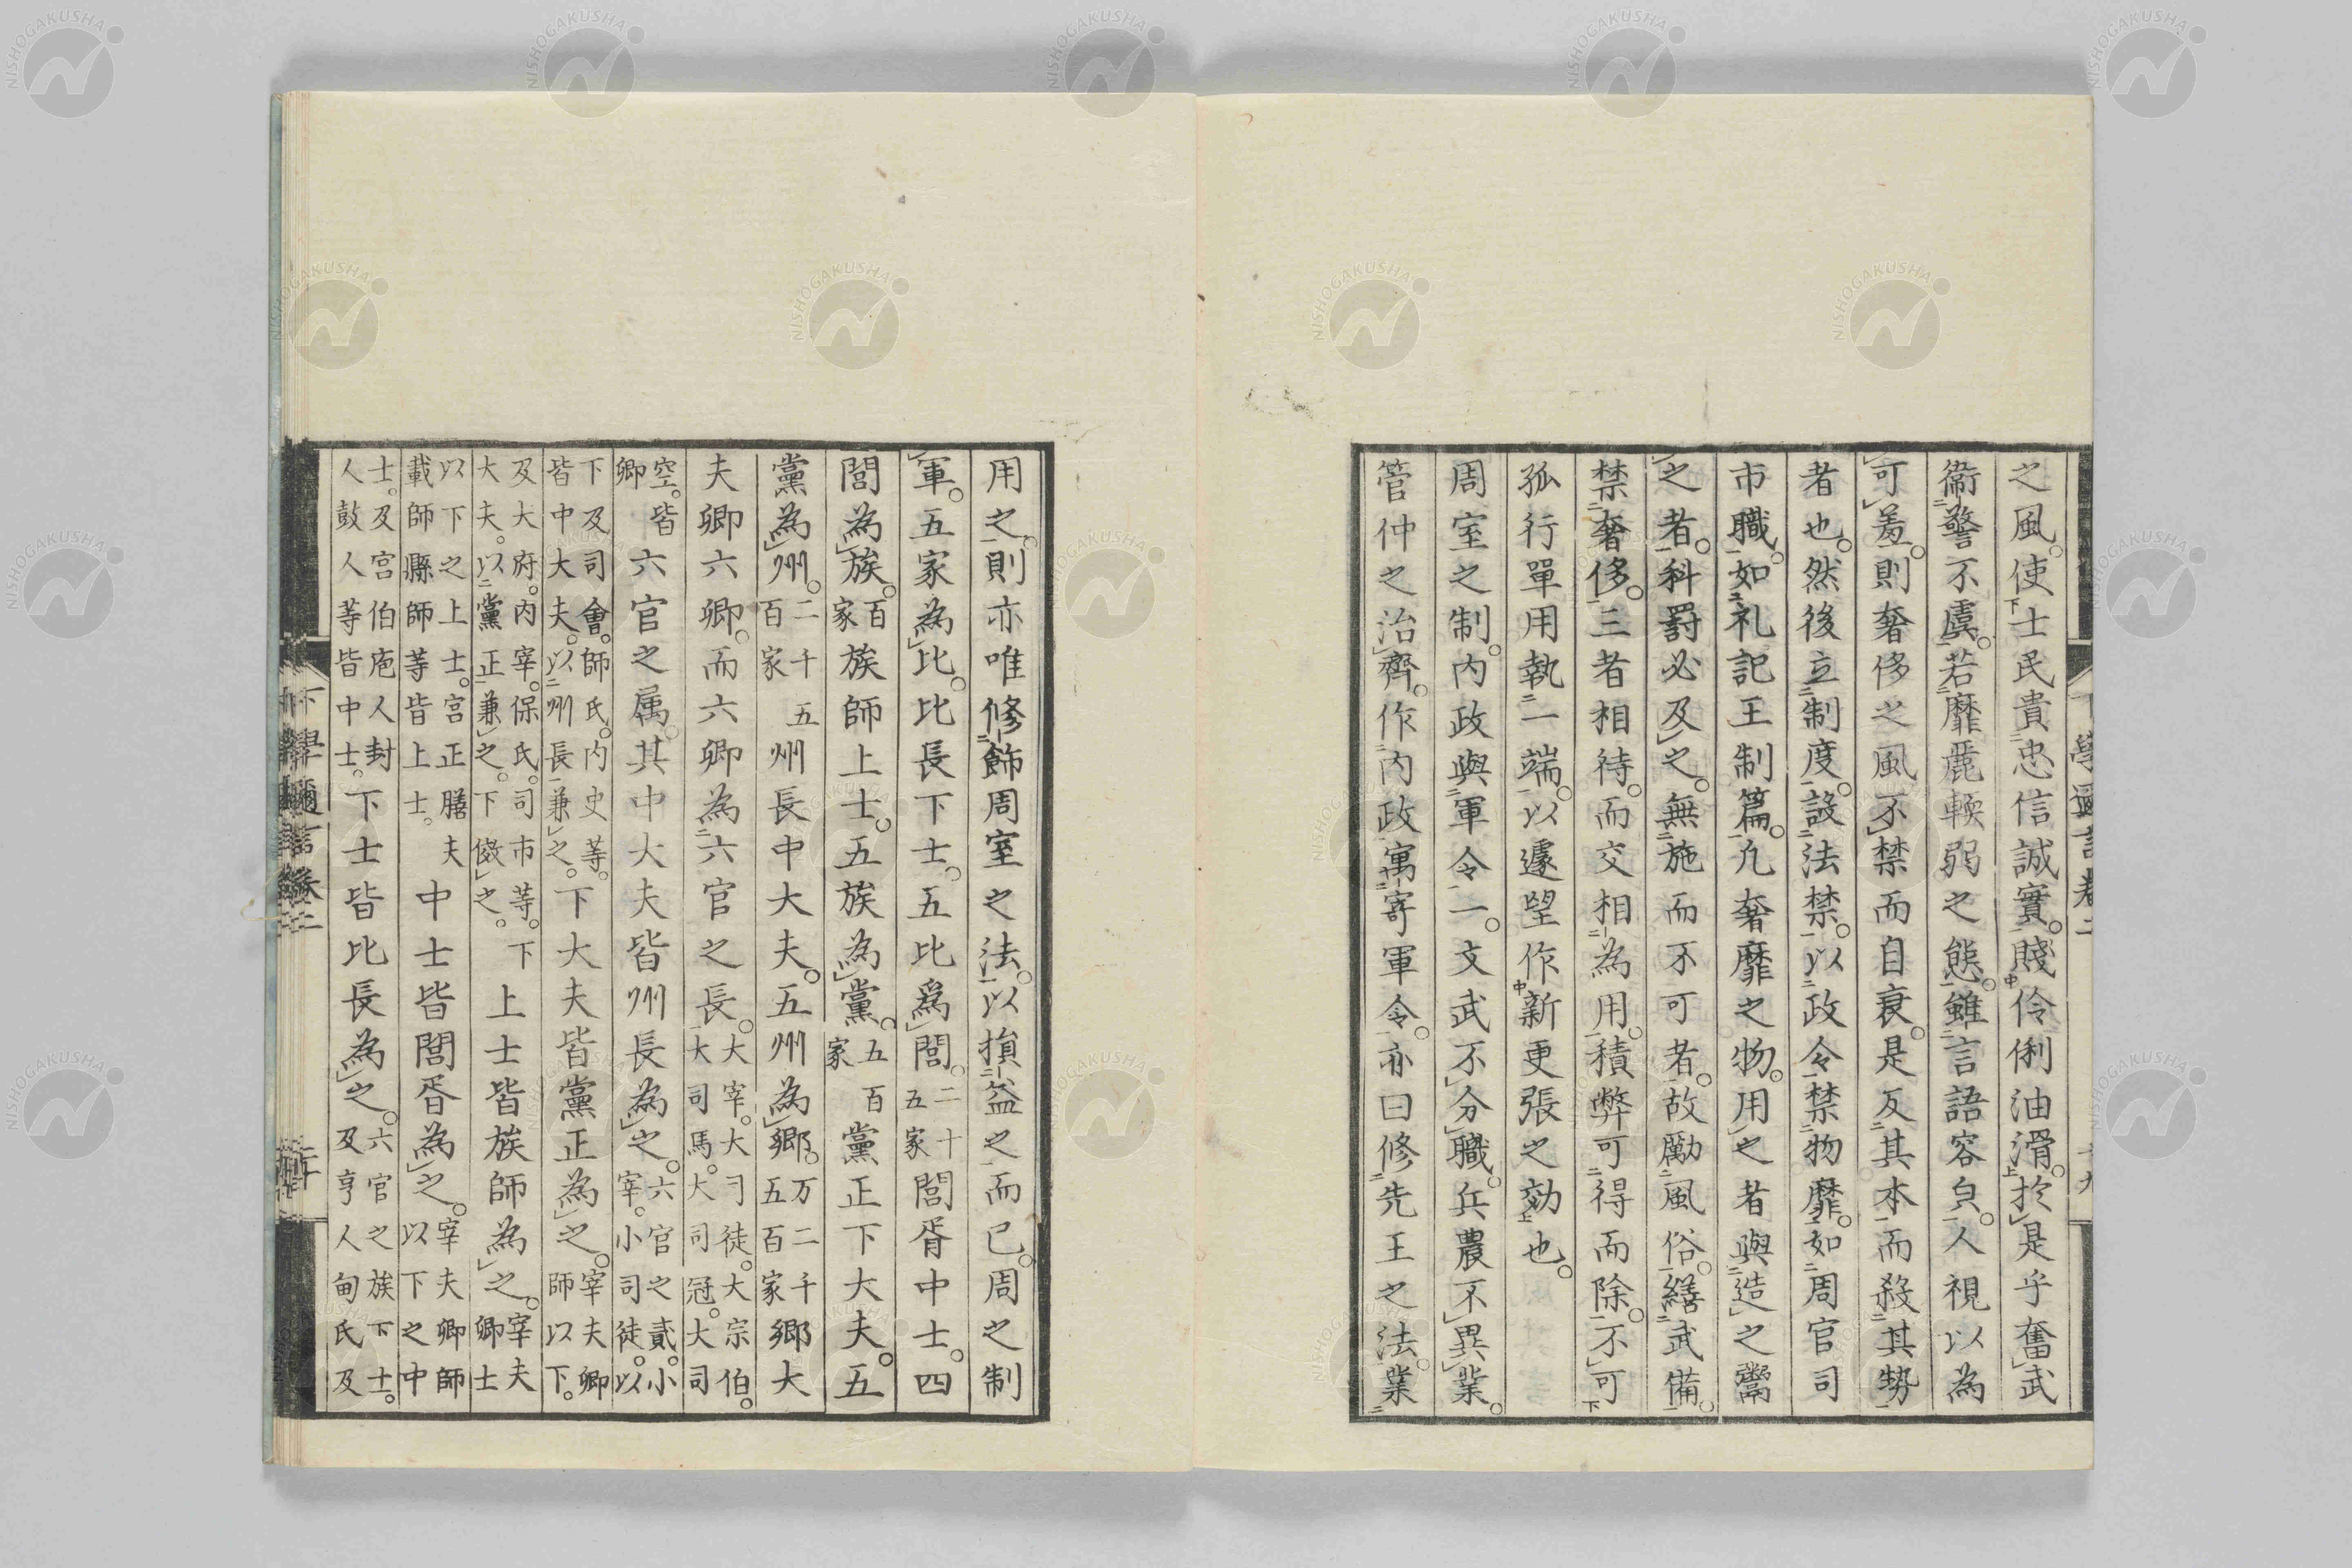 之風。使士民貴忠信誠實。賤伶俐油滑。於是乎奮武
衞警不虞。若靡麗輭弱之態。雖言語容皃。人視以為
可羞。則奢侈之風不禁而自衰。是反其本而殺其勢
者也。然後立制度。設法禁。以政令禁物靡。如周官司
市職。如礼記王制篇。凢奢靡之物。用之者與造之鬻
之者。科罰必及之。無施而不可者。故勵風俗。繕武備。
禁奢侈。三者相待。而交相為用。積弊可得而除。不可
孤行單用執一端。以遽望作新更張之効也。
周室之制。內政與軍令一。文武不分職。兵農不異業。
管仲之治齊。作內政寓寄軍令。亦曰修先王之法業
用之。則亦唯修飾周室之法。以損益之而已。周之制
軍。五家為比。比長下士。五比爲閭。二十五家閭胥中士。四
閭為族。百家族師上士。五族為黨。五百家黨正下大夫。五
黨為州。二千五百家州長中大夫。五州為鄉。万二千五百家鄉大
夫卿六卿。而六卿為六官之長。大宰。大司徒。大宗伯。大司馬。大司冦。大司
空。皆卿六官之属。其中大夫皆州長為之。六官之貳。小宰。小司徒。以
下及司會。師氏。內史等。皆中大夫。以州長兼之。下大夫皆黨正為之。宰夫卿師以下。
及大府。內宰。保氏。司市等。下大夫。以黨正兼之。下倣之。上士皆族師為之。宰夫卿士
以下之上士。宮正膳夫載師縣師等皆上士。中士皆閭胥為之。宰夫卿師以下之中
士。及宮伯庖人封人鼓人等皆中士。下士皆比長為之。六官之族下士。及亨人甸氏及
下學邇言卷二